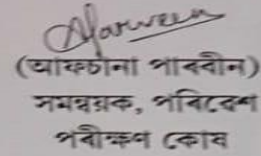 (আফচানা পাৰবীন)
সমন্বয়ক, পৰিবেশ
পৰীক্ষণ কোষ